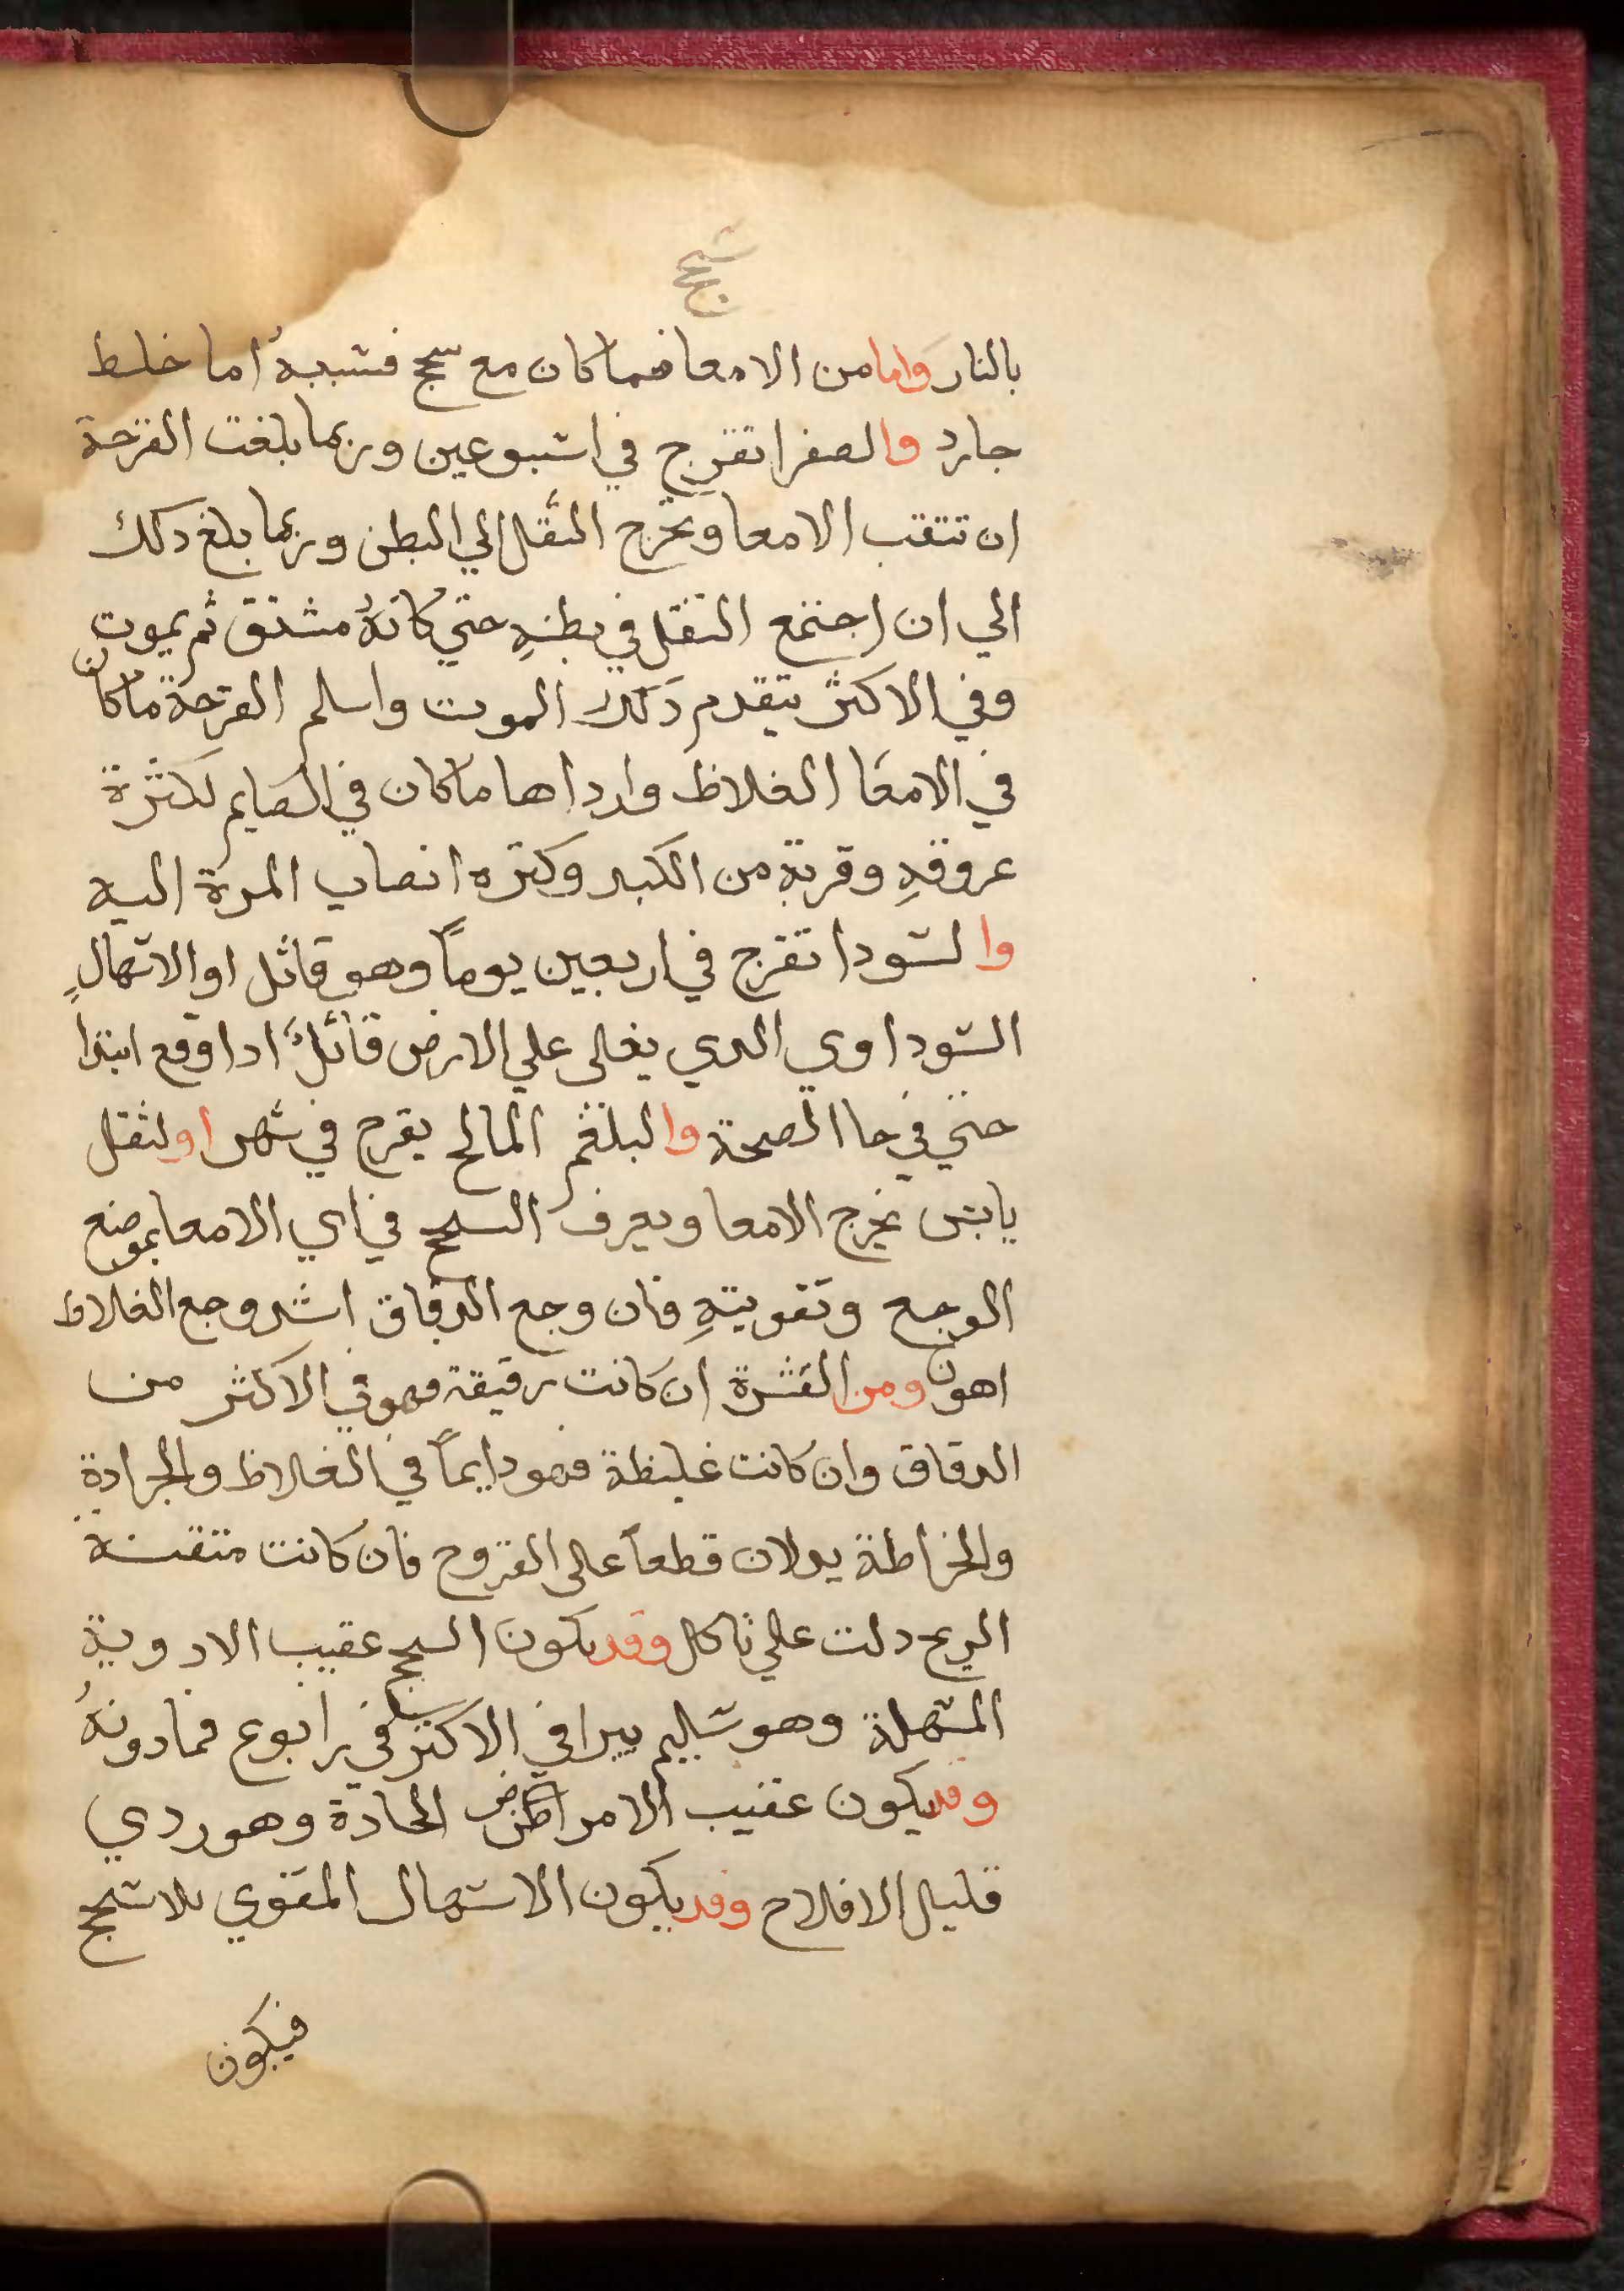 سحج
بالنار واما من الامعا فما كان مع سحج فسببهُ اما خلط
حارد والصفرا تقرح في اسبوعين وربما بلغت القرحة
ان تتقب الامعا وتخرج الثقل الي البطن وربما بلغ دلك
الي ان اجتمع الثقل في بطنهِ حتي كانهُ مستسق ثم يموت
وفي الاكثر يتقدم دلك الموت واسلم القرحة ما كان
في الامعا الغلاظ وارداها ما كان في الصايم لكثرة
عروقهِ وقربة من الكبد وكثرة انصاب المرة اليه
والسودا تقرح في اربعين يوماً وهو قاتل او الاسهالٍ
السوداوي الدي يغلى علي الارض قاتلً ادا وقع ابتدا
حتي في حا الصحة والبلغم المالح يقرح في شهر او لثقل
يابس يخرج الامعا ويعرف السحج في اي الامعا بموضع
الوجع وتقويتهِ فان وجع الدقاق اشد وجع الغلاظ
اهون ومن القشرة ان كانت رقيقة فهو في الاكثر من
الدقاق وان كانت غليظة فهو دايماً في الغلاظ والجرادة
والخراطة يدلان قطعاً على القروح فان كانت متقنة
الريح دلت علي تاكل وقد يكون السحج عقيب الادوية
المسهلة وهو سليم يبرا في الاكثر في رابوع فما دونهُ
وقد يكون عقيب الامراض الحادة وهو ردي
قليل الافلاح وقد يكون الاسهال المقوي بلا سحج
فيكون